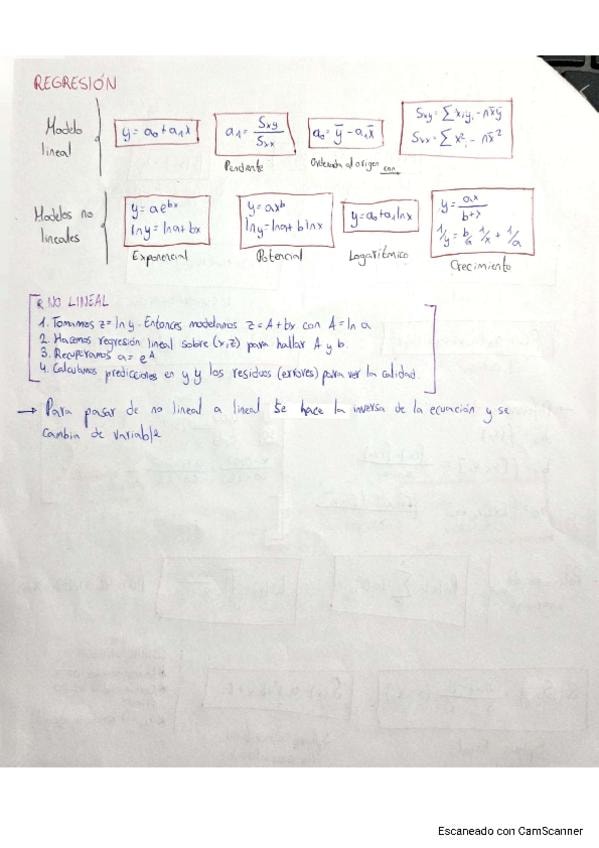 REGRESIÓN
Modelo lineal
y = a₀ + a₁x
a₁ = Sxy / Sxx
Pendiente
a₀ = ȳ - a₁x̄
Ordenada al origen con
Sxy = ∑ xᵢyᵢ - nx̄ȳ
Sxx = ∑ x²ᵢ - nx̄²
Modelos no lineales
y = ae^bx
ln y = ln a + bx
Exponencial
y = ax^b
ln y = ln a + b ln x
Potencial
y = a₀ + a₁ ln x
Logarítmico
y = ax / b+x
1/y = b/a 1/x + 1/a
Crecimiento
R NO LINEAL
1. Tomamos z = ln y. Entonces modelamos z = A + bx con A = ln a
2. Hacemos regresión lineal sobre (x,z) para hallar A y b.
3. Recuperamos a = e^A
4. Calculamos predicciones en y y los residuos (errores) para ver la calidad.
→ Para pasar de no lineal a lineal se hace la inversa de la ecuación y se
cambia de variable
Escaneado con CamScanner